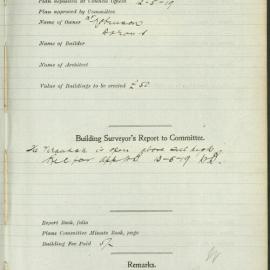 Plan deposited at Council Office 2-5-19
Plan approved by Committee
Name of Owner
Name of Builder
Name of Architect
Value of Buildings to be erected £50
Building Surveyor's Report to Committee.
The Verandah is open above
Rec for app
Report Book, folio
Plans Committee Minute Book, page
Building Fee Paid 5/-
Remarks.